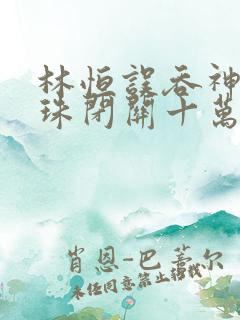 林恒誤吞神
珠閉關十萬
肖恩-巴蒂尔
未经同意禁止转载